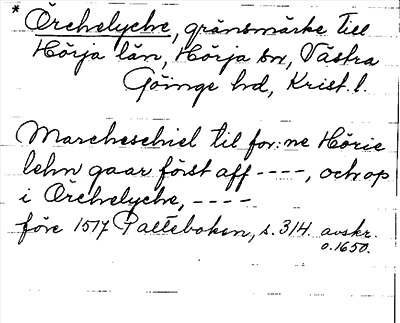 * Örchelyche, gränsmärke till
Hörja län, Hörja sn, Västra
Göinge hd, Krist. l.
Marcheschiel til for:ne Hörie
lehn gaar först aff ----, och op
i Örchelyche, ----
före 1517 Palteboken, s. 314. avskr.
o. 1650.